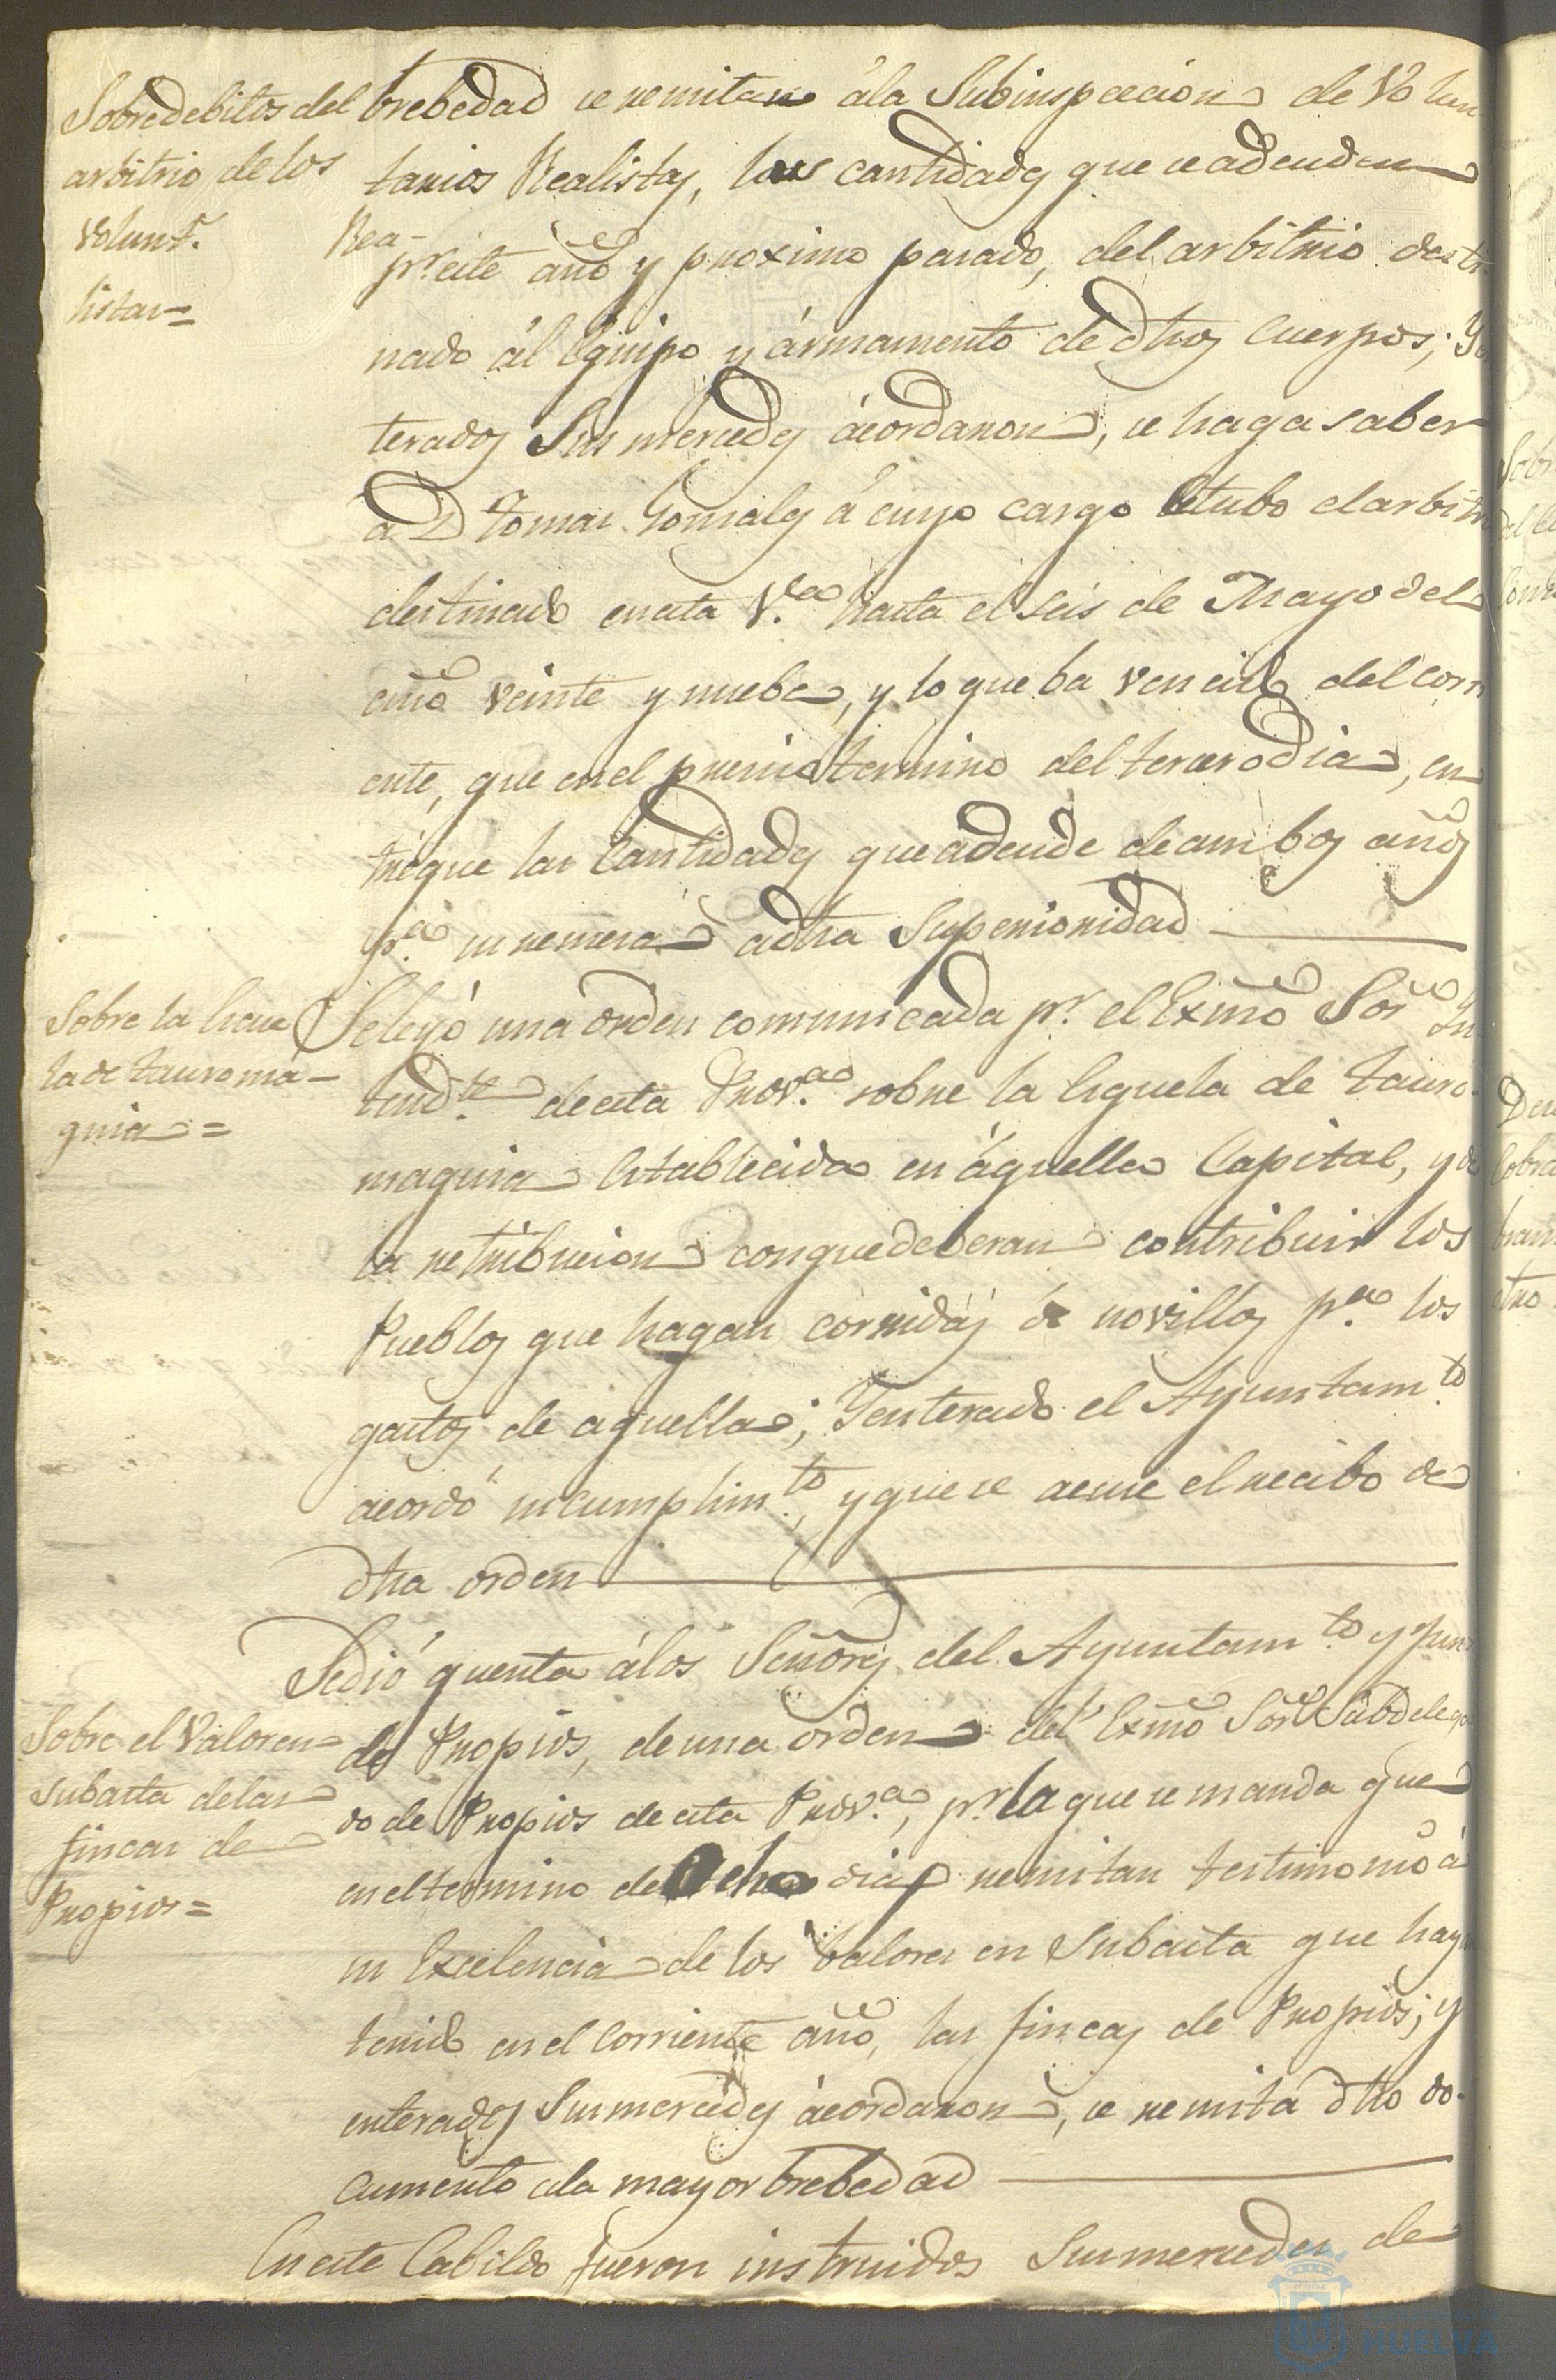 Sobre debitos del
arbitrio de los
Volunt.s Rea-
listas=
brebedad se remitan á la Subinspeccion de Volun
tarios Realistas, las cantidades que se adeuden
pr. este año y proximo pasado, del arbitrio desti-
nado ál Equipo y ármamento de dhos Cuerpos; Y
terados Sus mercedes ácordaron, se haga saber
a Dn Tomas Gonsales á cuyo cargo Estubo el arbitrio
destinado en esta V.a hasta el seis de Mayo del
año veinte y nuebe, y lo que ba vencido del corri
ente, que en el preciso termino del tercero dia, en
tregue las Cantidades que adeude de ambos años
p.a su remesa á dha Superioridad
Sobre la Escue
la de tauroma-
quia=
Se leyó una orden comunicada pr. el Exmõ Sor. In
tend.te de esta Prov.a sobre la Esquela de tauro-
maquia Establecida en áquella Capital, y de
la retribucion con que deberan contribuir los
Pueblos que hagan corridas de novillos p.a los
gastos de aquella; Y enterado el Ayuntam.to
acordó su cumplim.to, y que se acuse el recibo de
dha orden
Sobre el Valor en
subasta de las
fincas de
Propios=
Se dió quenta á los Señores del Ayuntam.to y Junta
de Propios, de una orden del Exmõ Sor. Subdelega
do de Propios de esta Prov.a, pr. la que se manda que
en el termino de Ocho dias remitan testimonio á
su Excelencia de los Valores en Subasta que hayan
tenido en el Corriente año, las fincas de Propios; y
enterados Sus mercedes ácordaron, se remita dho do-
cumento á la mayor brebedad
En este Cabildo fueron instruidos Sus mercedes de
HUELVA